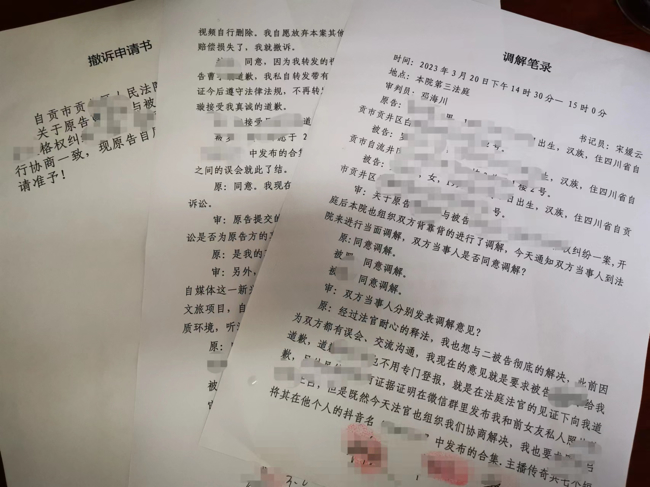 撤诉申请书
自贡市贡
民法院
关于原告
与被
格权纠
行协商一致，现原告自
请准予！
视频自行删除。我自愿放弃本案其他
赔偿损失了，我就撤诉。
同意，因为我转发的
告曹
道歉，我私自转发带有
证今后遵守法律法规，不再转
碰接受我真诚的道歉。
接受
道
于 2
中发布的合集
之间的误会就此了结。
原：同意。我现在
诉讼。
审：原告提交的
讼是否为原告方的
原：是我的
审：另外，
自媒体这一新
文旅项目，自
质环境，听
原：
调解笔录
时间：2023 年 3 月 20 日下午 14 时 30 分— 15 时 0 分
地点：本院第三法庭
审判员：邓海川
书记员：宋媛云
原告：
出生，汉族，住四川省自
贡市贡井区白
号。
被告：
出生，汉族，住四川省自
贡市自流井
2 号。
被告：
，女，1
日出生，汉族，住四川省自贡
市贡井区
号。
审：关于原告
与被告
权纠纷一案，开
庭后本院也组织双方背靠背的进行了调解，今天通知双方当事人到法
院来进行当面调解，双方当事人是否同意调解？
原：同意调解。
被
同意调解。
被
同意调解。
审：双方当事人分别发表调解意见？
原：经过法官耐心的释法，我也想与二被告彻底的解决，此前因
为双方都有误会、交流沟通，我现在的意见就是要求被告
给我
道歉，道
也不用专门登报，就是在法庭法官的见证下向我道
歉，
有证据证明在微信群里发布我和前女友私人照
但是既然今天法官也组织我们协商解决，我也要
将其在他个人的抖音名
中发布的合集，主播传奇共七个短